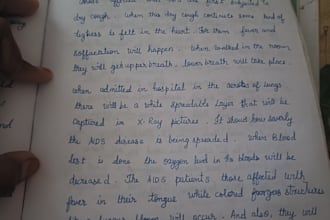 affected with AIDS are first subjected to
dry cough. When this dry cough continues some kind of
tigness is felt in the heart. For them fever and
soffacation will happen. When walked in the room,
they will get upper breath, lower breath will take place.
When admitted in hospital in the of lungs
there will be a white spreadable layer that will be
captured in X-Ray pictures. It should how severely
the AIDS disease is being spreaded. When Blood
test is done the oxygen level in the bloods will be
decreased. The AIDS patients those affected with
fever in their tongue white colored structures
will occurs. And also, they will